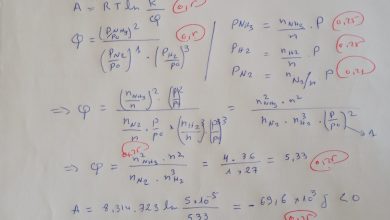 A = RT ln K/φ 0,5
φ = (P_NH3/P0)² / (P_N2/P0)¹ · (P_H2/P0)³ 0,5
P_NH3 = n_NH3/n · P 0,25
P_H2 = n_H2/n · P 0,25
P_N2 = n_N2/n P 0,25
=> φ = (n_NH3/n)² · / n_N2/n · P/P0 × (n_H2/n)³ = n²_NH3 · n² / n_N2 · n³_H2 · (P/P0)² → 1
=> φ = n²_NH3 · n² / n_N2 · n³_H2 = 4 · 36 / 1 × 27 = 5,33 0,25 0,25
A = 8,314 · 723 ln 5×10⁻⁵ / 5,33 = - 69,6 × 10³ J < 0
0,25